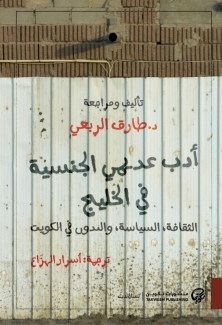 تأليف ومراجعة
د. طارق الربعي
أدب عديمي الجنسية
في الخليج
الثقافة، السياسة، والبدون في الكويت
ترجمة: أسرار الهزاع
منشورات تكوين
TAKWEEN PUBLISHING